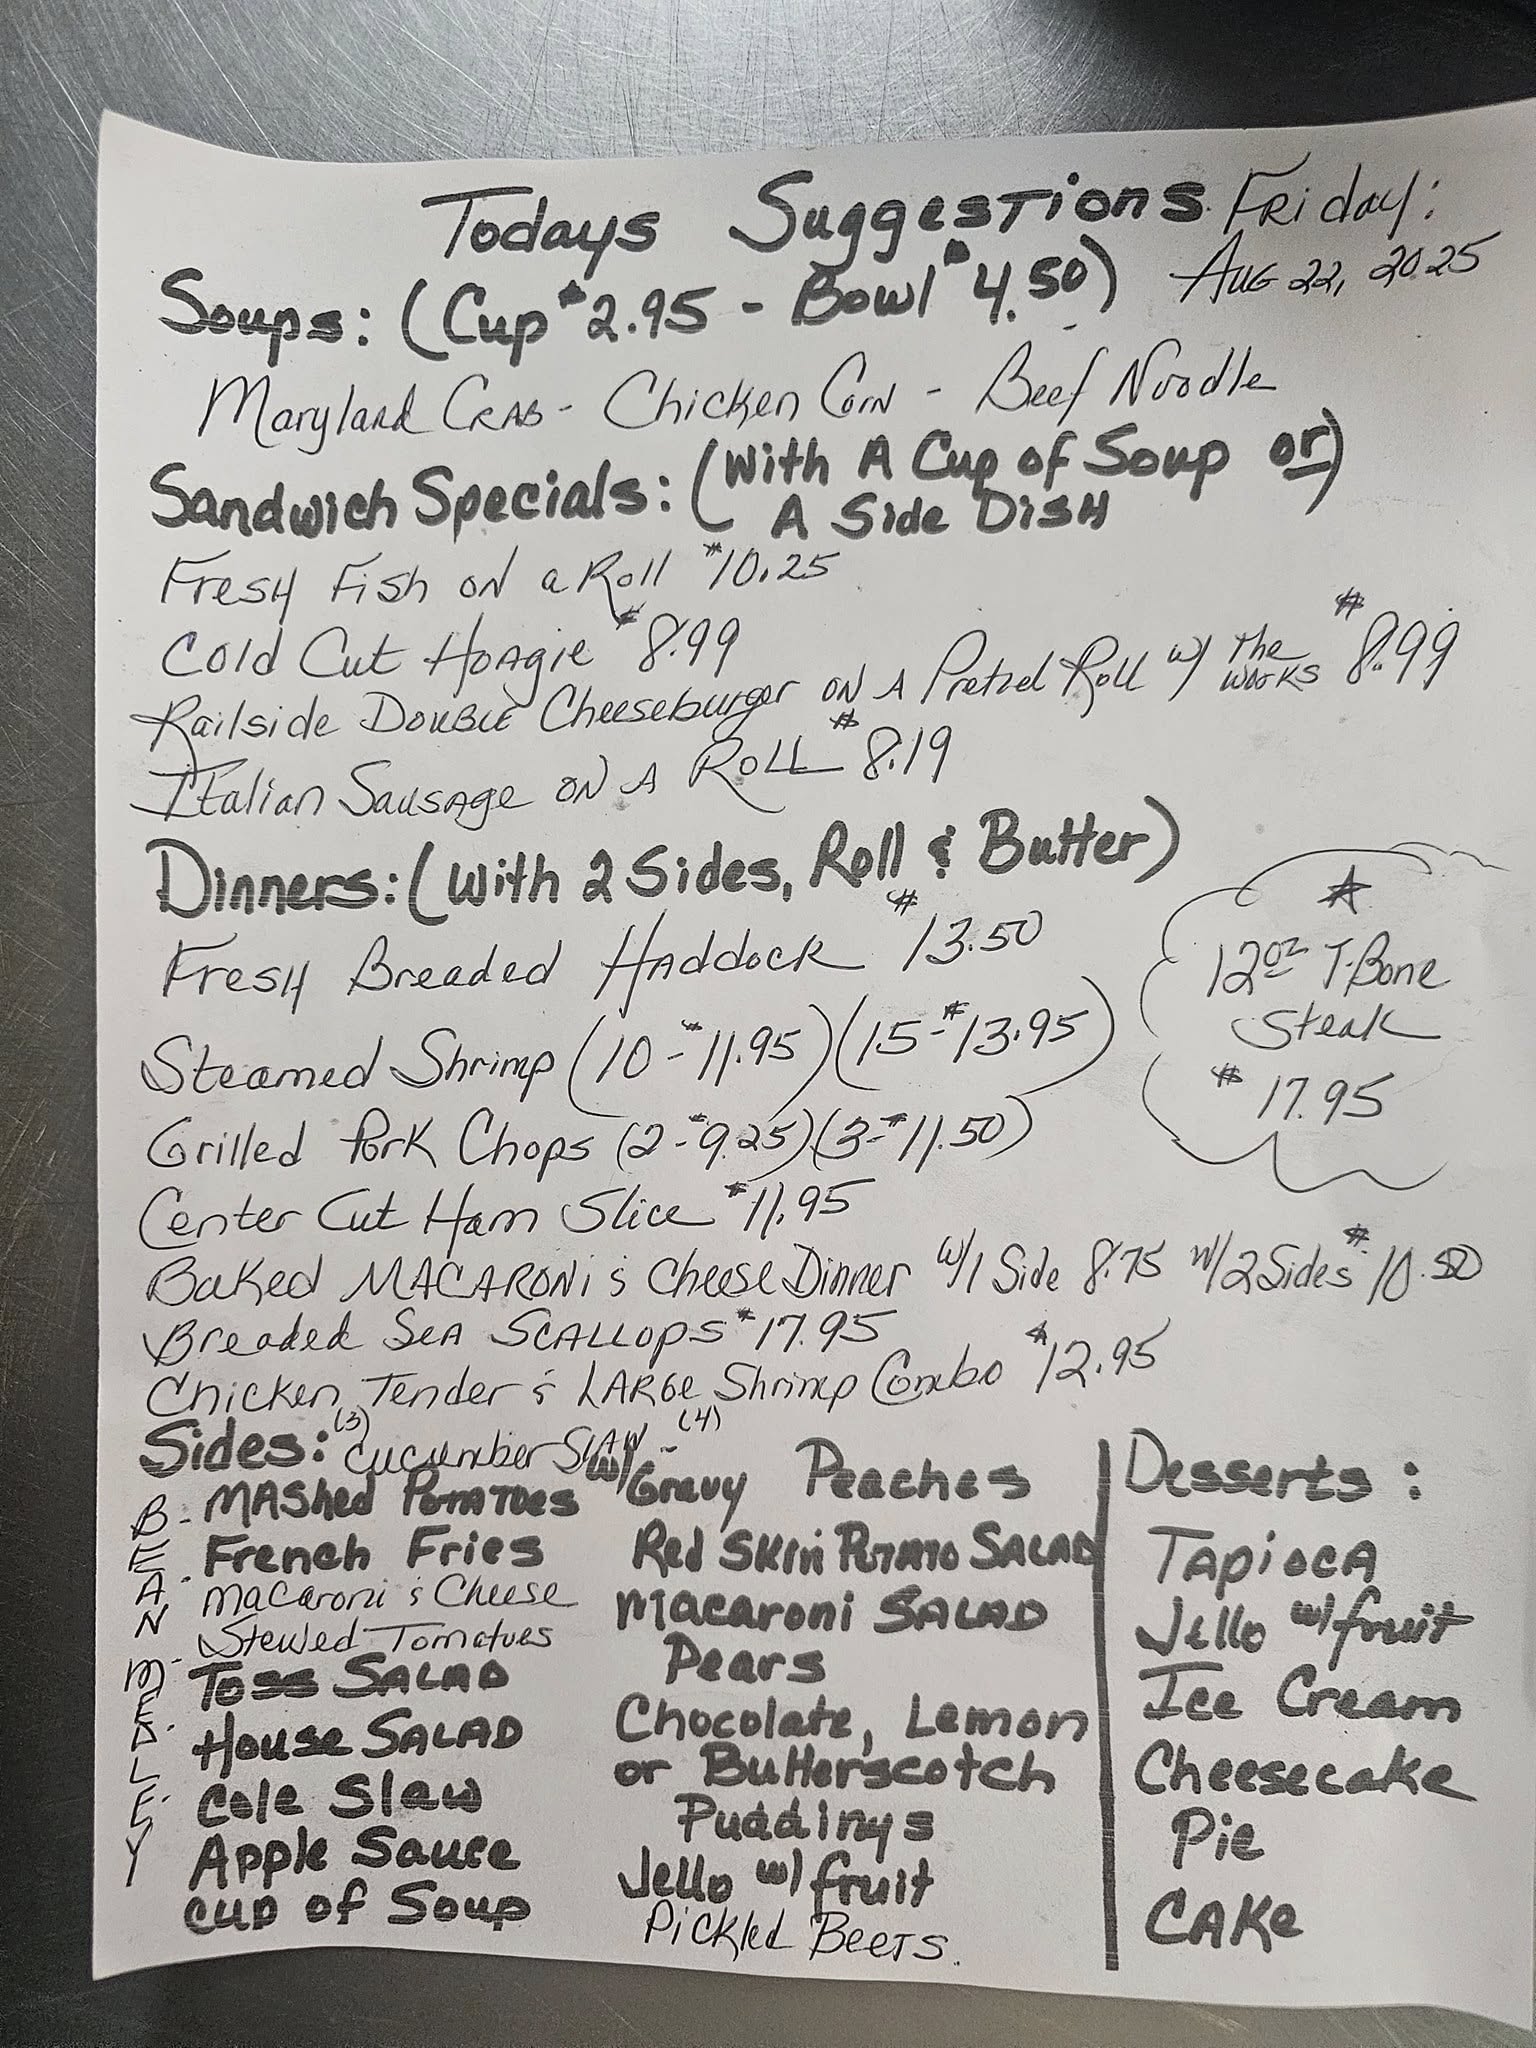 Todays Suggestions Friday:
Aug 22, 2025
Soups: (Cup $2.95 - Bowl $4.50)
Maryland Crab - Chicken Corn - Beef Noodle
Sandwich Specials: (With A Cup of Soup or)
A Side Dish
Fresh Fish on a Roll $10.25
Cold Cut Hoagie $8.99
Railside Double Cheeseburger on A Pretzel Roll w/ the works $8.99
Italian Sausage on A Roll $8.19
Dinners: (With 2 Sides, Roll & Butter)
Fresh Breaded Haddock $13.50
Steamed Shrimp (10-$11.95) (15-$13.95)
Grilled Pork Chops (2-$9.25) (3-$11.50)
Center Cut Ham Slice $11.95
Baked Macaroni & Cheese Dinner w/1 Side 8.75 w/2 Sides $10.50
Breaded Sea Scallops $17.95
Chicken Tender & Large Shrimp Combo $12.95
(3) (4)
12oz T-Bone
Steak
$17.95
Sides: Cucumber Slaw -
Mashed Potatoes w/ Gravy
French Fries
Macaroni & Cheese
Stewed Tomatoes
Toss Salad
House Salad
Cole Slaw
Apple Sauce
Cup of Soup
BEAN MEDLEY
Peaches
Red Skin Potato Salad
Macaroni Salad
Pears
Chocolate, Lemon
or Butterscotch
Puddings
Jello w/ fruit
Pickled Beets.
Desserts:
Tapioca
Jello w/ fruit
Ice Cream
Cheesecake
Pie
Cake